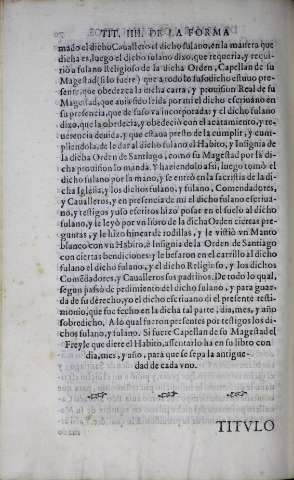 TIT. IIII. DE LA FORMA
mado el dicho Cauallero el dicho fulano, en la manera que
dicha es, luego el dicho fulano dixo, que requeria, y requi-
rio a fulano Religioso de la dicha Orden, Capellan de su
Magestad (si lo fuere) que a todo lo susodicho estuuo pre-
sente, que obedezca la dicha carta, y prouision Real de su
Magestad, que auia sido leida por mi el dicho escriuano en
su presencia, que de suso va incorporada: y el dicho fulano
dixo, que la obedecia, y obedecio con el acatamiento, y re-
uerencia deuida, y que estaua presto de la cumplir, y cum-
pliendola, de le dar al dicho fulano el Habito, y Insignia de
la dicha Orden de Santiago, como su Magestad por la di-
cha prouision lo manda. Y haziendolo assi, luego tomò el
dicho fulano por la mano, y se entrò en la sacristia de la di-
cha Iglesia, y los dichos fulano, y fulano, Comendadores,
y Caualleros, y en presencia de mi el dicho fulano escriua-
no, y testigos yuso escritos hizo posar en el suelo al dicho
fulano, y le leyò por vn libro de la dicha Orden ciertas pre-
guntas, y le hizo hincar de rodillas, y le vistiò vn Manto
blanco con vn Habito, è Insignia de la Orden de Santiago
con ciertas bendiciones: y le besaron en el carrillo al dicho
fulano el dicho fulano, y el dicho Religioso, y los dichos
Comẽdadores, y Caualleros sus padrinos. De todo lo qual,
segun passò de pedimiento del dicho fulano, y para guar-
da de su derecho, yo el dicho escriuano di el presente testi-
monio, que fue fecho en la dicha tal parte, dia, mes, y año
sobredicho. A lo qual fueron presentes por testigos los di-
chos fulano, y fulano. Si fuere Capellan de su Magestad el
Freyle que diere el Habito, assentarlo ha en su libro con
dia, mes, y año, para que se sepa la antigue-
dad de cada vno.
TITVLO